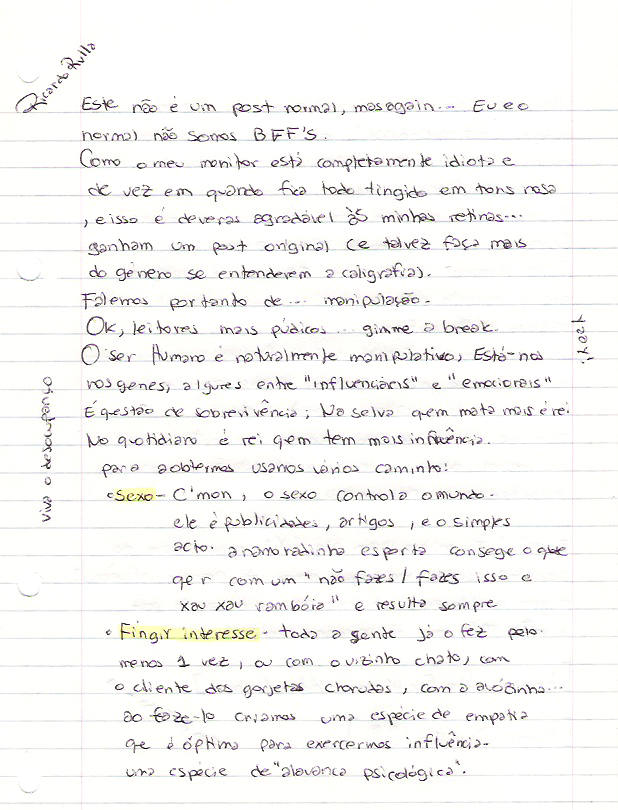 Ricardo Rulla
Este não é um post normal, mas again... Eu e o
normal não somos BFF'S.
Como o meu monitor está completamente idiota e
de vez em quando fica todo tingido em tons rosa
, e isso é deveras agradável às minhas retinas...
ganham um post original (e talvez faça mais
do género se entenderem a caligrafia).
Falemos portanto de... manipulação.
Ok, leitores mais púdicos... gimme a break.
O ser Humano é naturalmente manipulativo, Está-nos
nos genes, algures entre "influenciáris" e "emociorais"
É questão de sobrevivência; Na selva quem mata mais é rei
No quotidiano é rei qem tem mais influência.
para a obtermos usamos vários caminto:
Sexo - C'mon, o sexo controla o mundo.
ele é publicidades, artigos, e o simples
acto. a namoradinha esperta consege o que
qer com um "não fazes / fazes isso e
xau xau rambóia" e resulta sempre
Fingir interesse - toda a gente já o fez pelo
menos 1 vez, ou com o vizinho chato, com
o cliente das gorjetas chorudas, com a avózinha...
ao faze-lo criamos uma espécie de empatia
qe é óptima para exercermos influência.
uma espécie de "alavanca psicológica".
viva o desocupanço